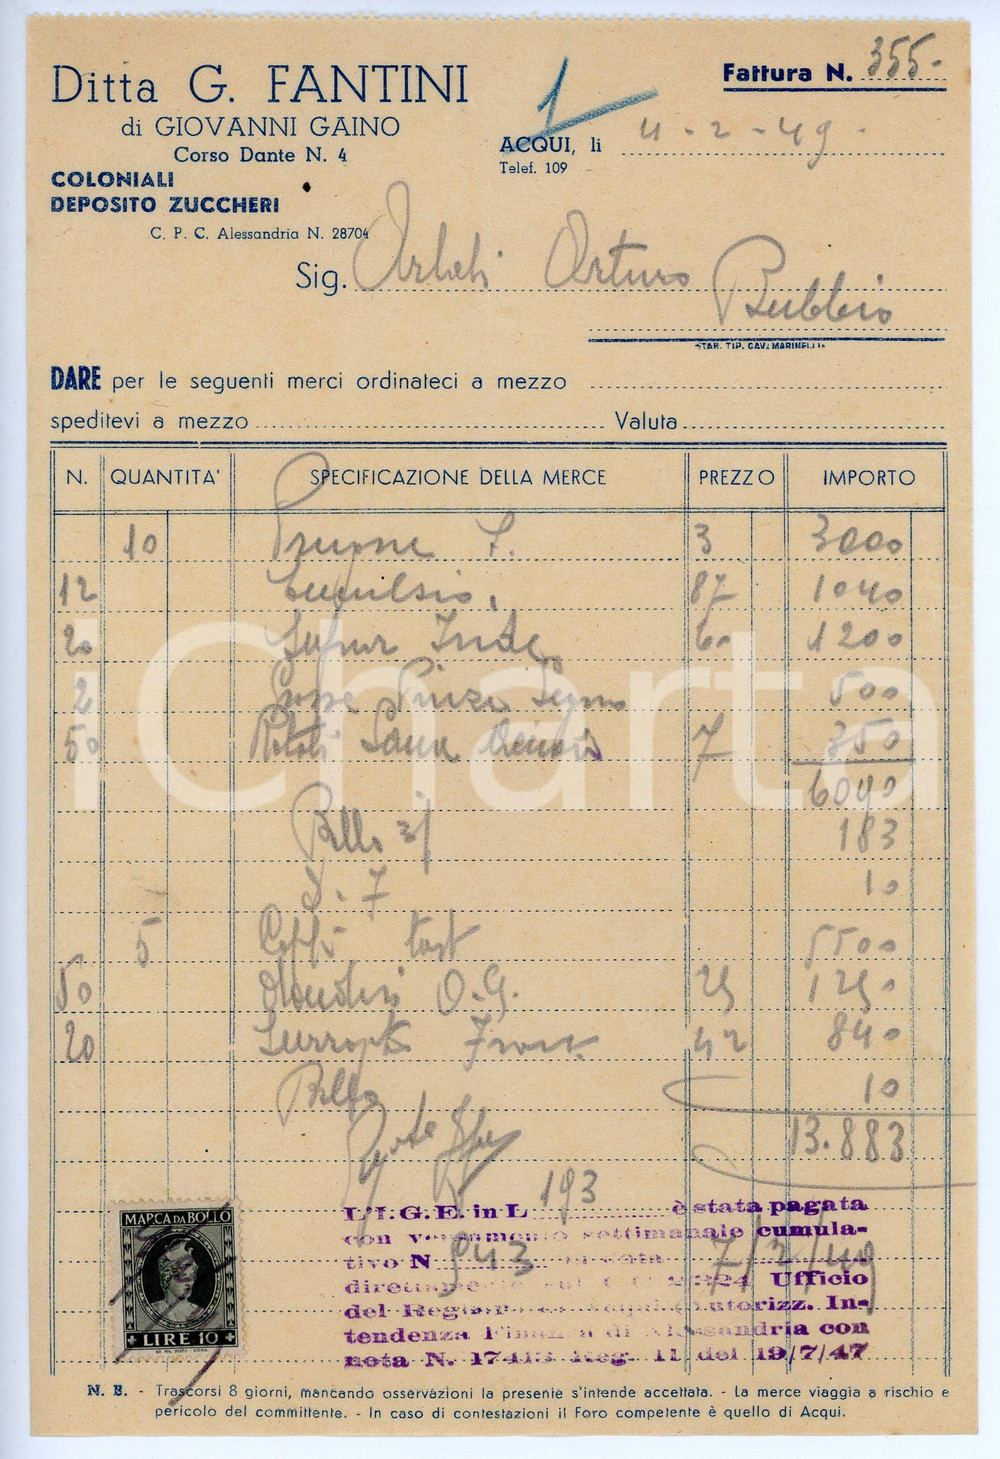 Ditta G. FANTINI
di GIOVANNI GAINO
Corso Dante N. 4
COLONIALI
DEPOSITO ZUCCHERI
C. P. C. Alessandria N. 28704
Fattura N. 355-
1
ACQUI, li 4-2-49.
Telef. 109
Sig. Arturo
Bubbio
STAB. TIP. CAV. MARINELLI
DARE per le seguenti merci ordinateci a mezzo
speditevi a mezzo Valuta
N. QUANTITA' SPECIFICAZIONE DELLA MERCE PREZZO IMPORTO
10 3 3000
12 87 1040
20 60 1200
2 500
50 7 350
6090
Bollo 3% 183
10
5 Caffè tost 5500
50 O.G. 25 1250
20 42 840
Bollo 10
13.883
MARCA DA BOLLO
LIRE 10
L'I.G.E. in L 193 è stata pagata
con versamento settimanale cumula-
tivo N 943 in data 7/2/49
direttamente sul C/C 2/324 Ufficio
del Registro di Acqui (autorizz. In-
tendenza Finanza di Alessandria con
nota N. 17413 Reg. 11 del 19/7/47
N. B. - Trascorsi 8 giorni, mancando osservazioni la presente s'intende accettata. - La merce viaggia a rischio e
pericolo del committente. - In caso di contestazioni il Foro competente è quello di Acqui.
iCharta